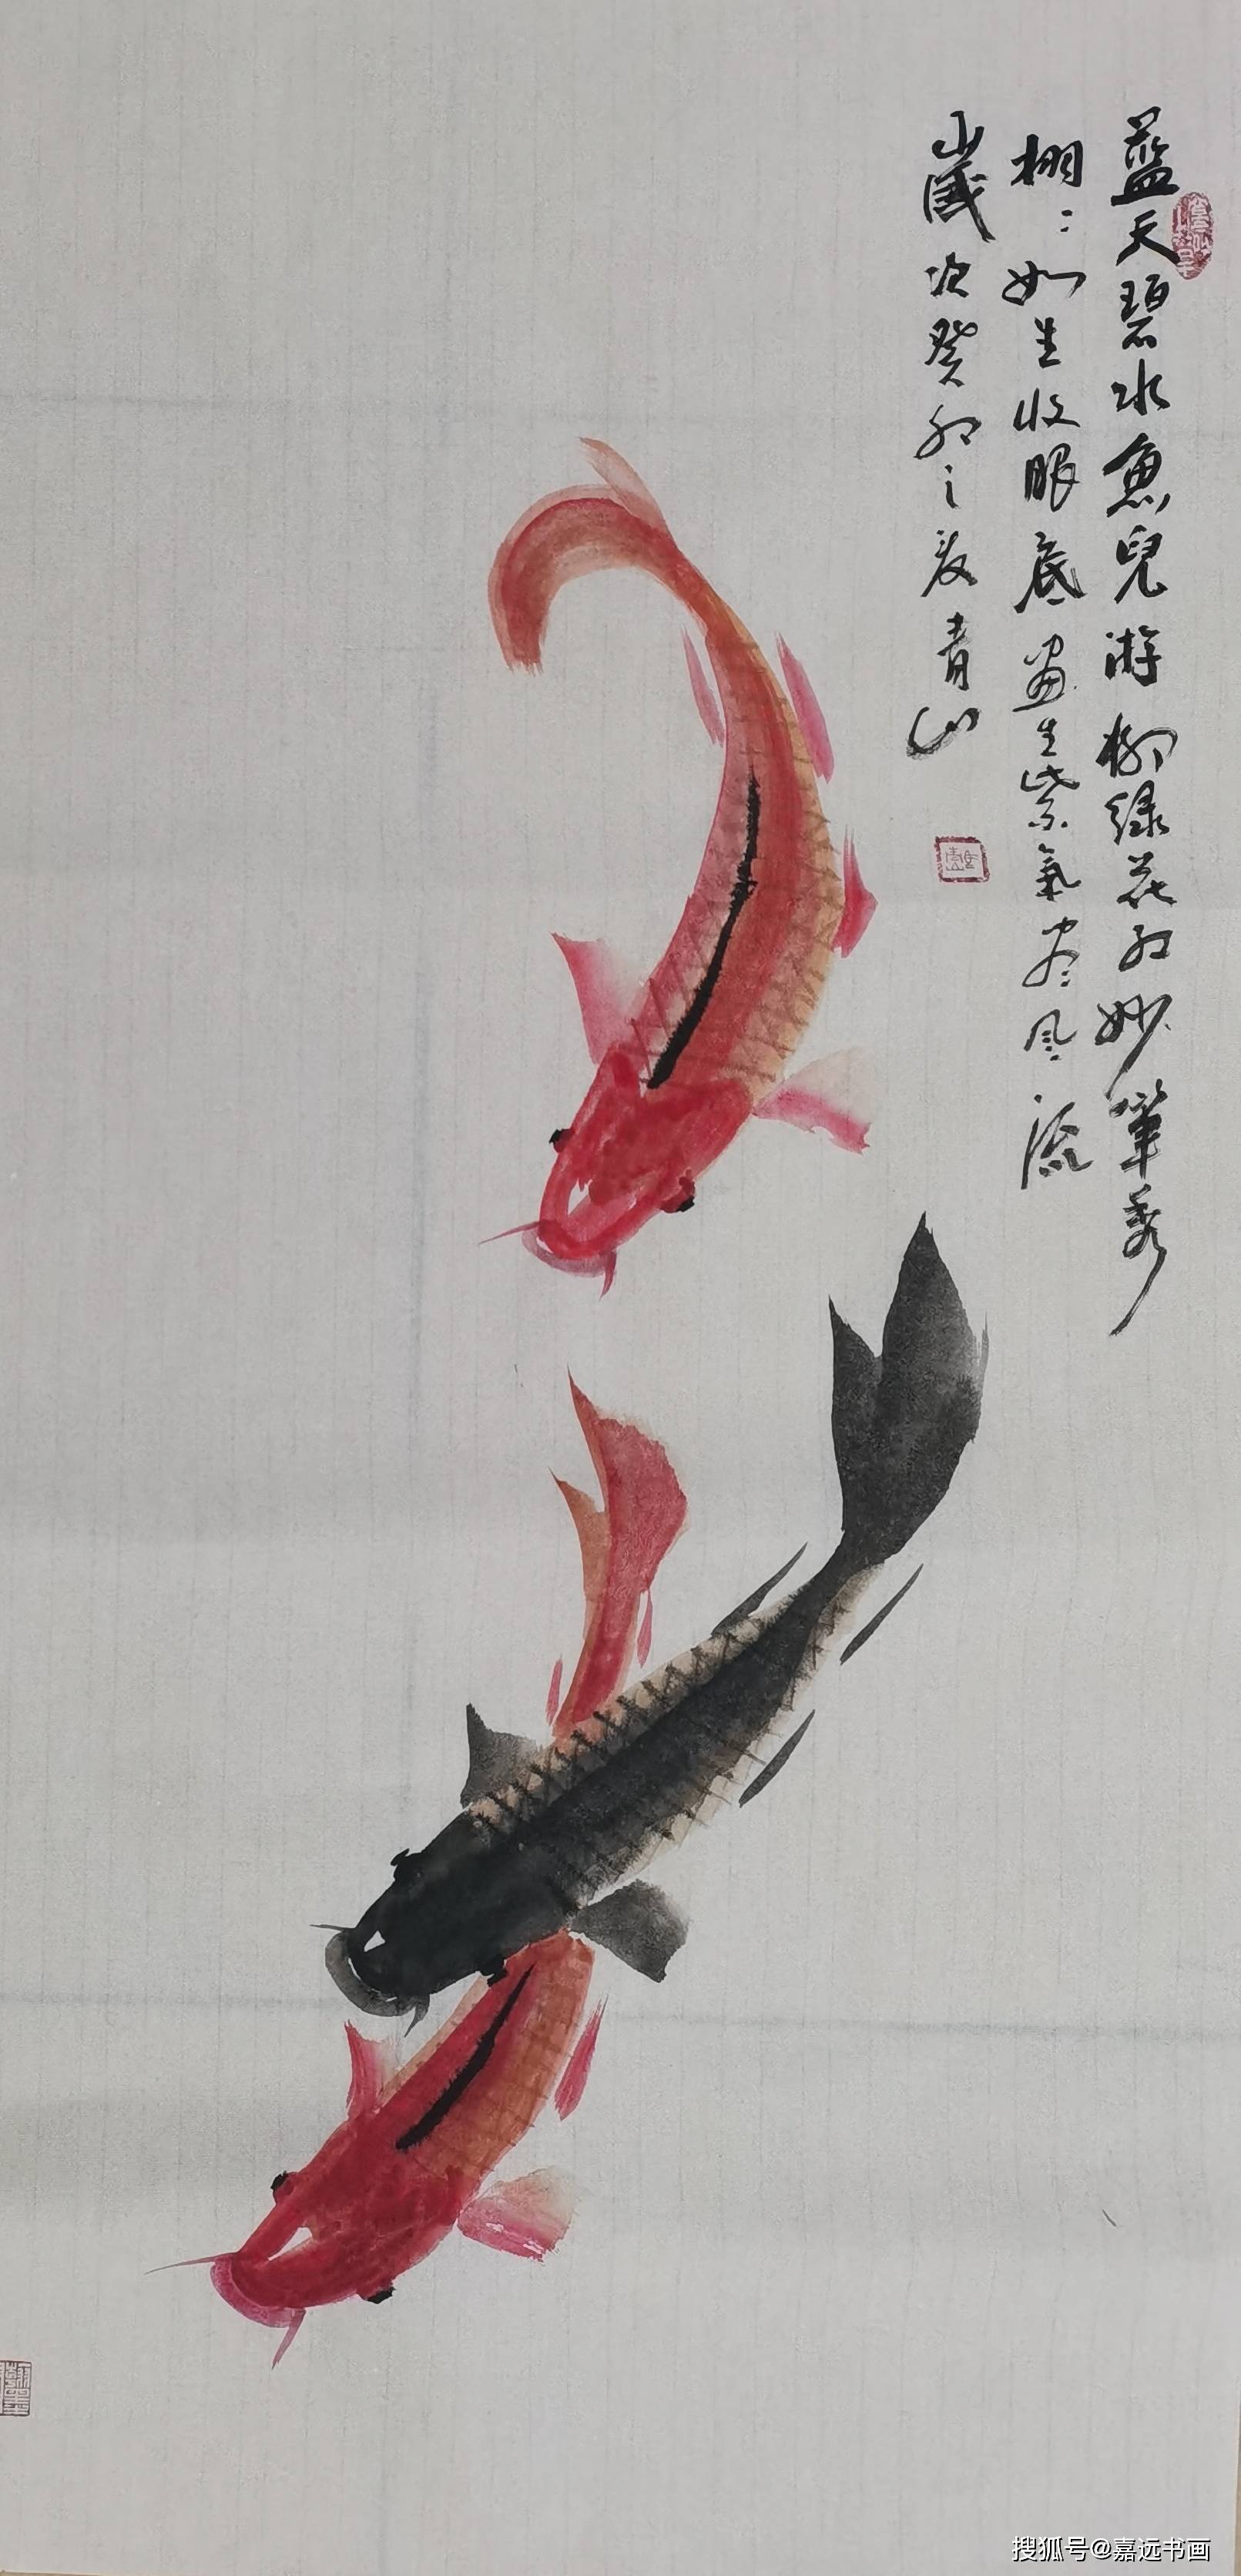 蓝天碧水鱼儿游柳绿花红妙笔秀
栩:如生收眼底画生紫氣尽风流
岁次癸卯之夏青山
搜狐号@嘉远书画